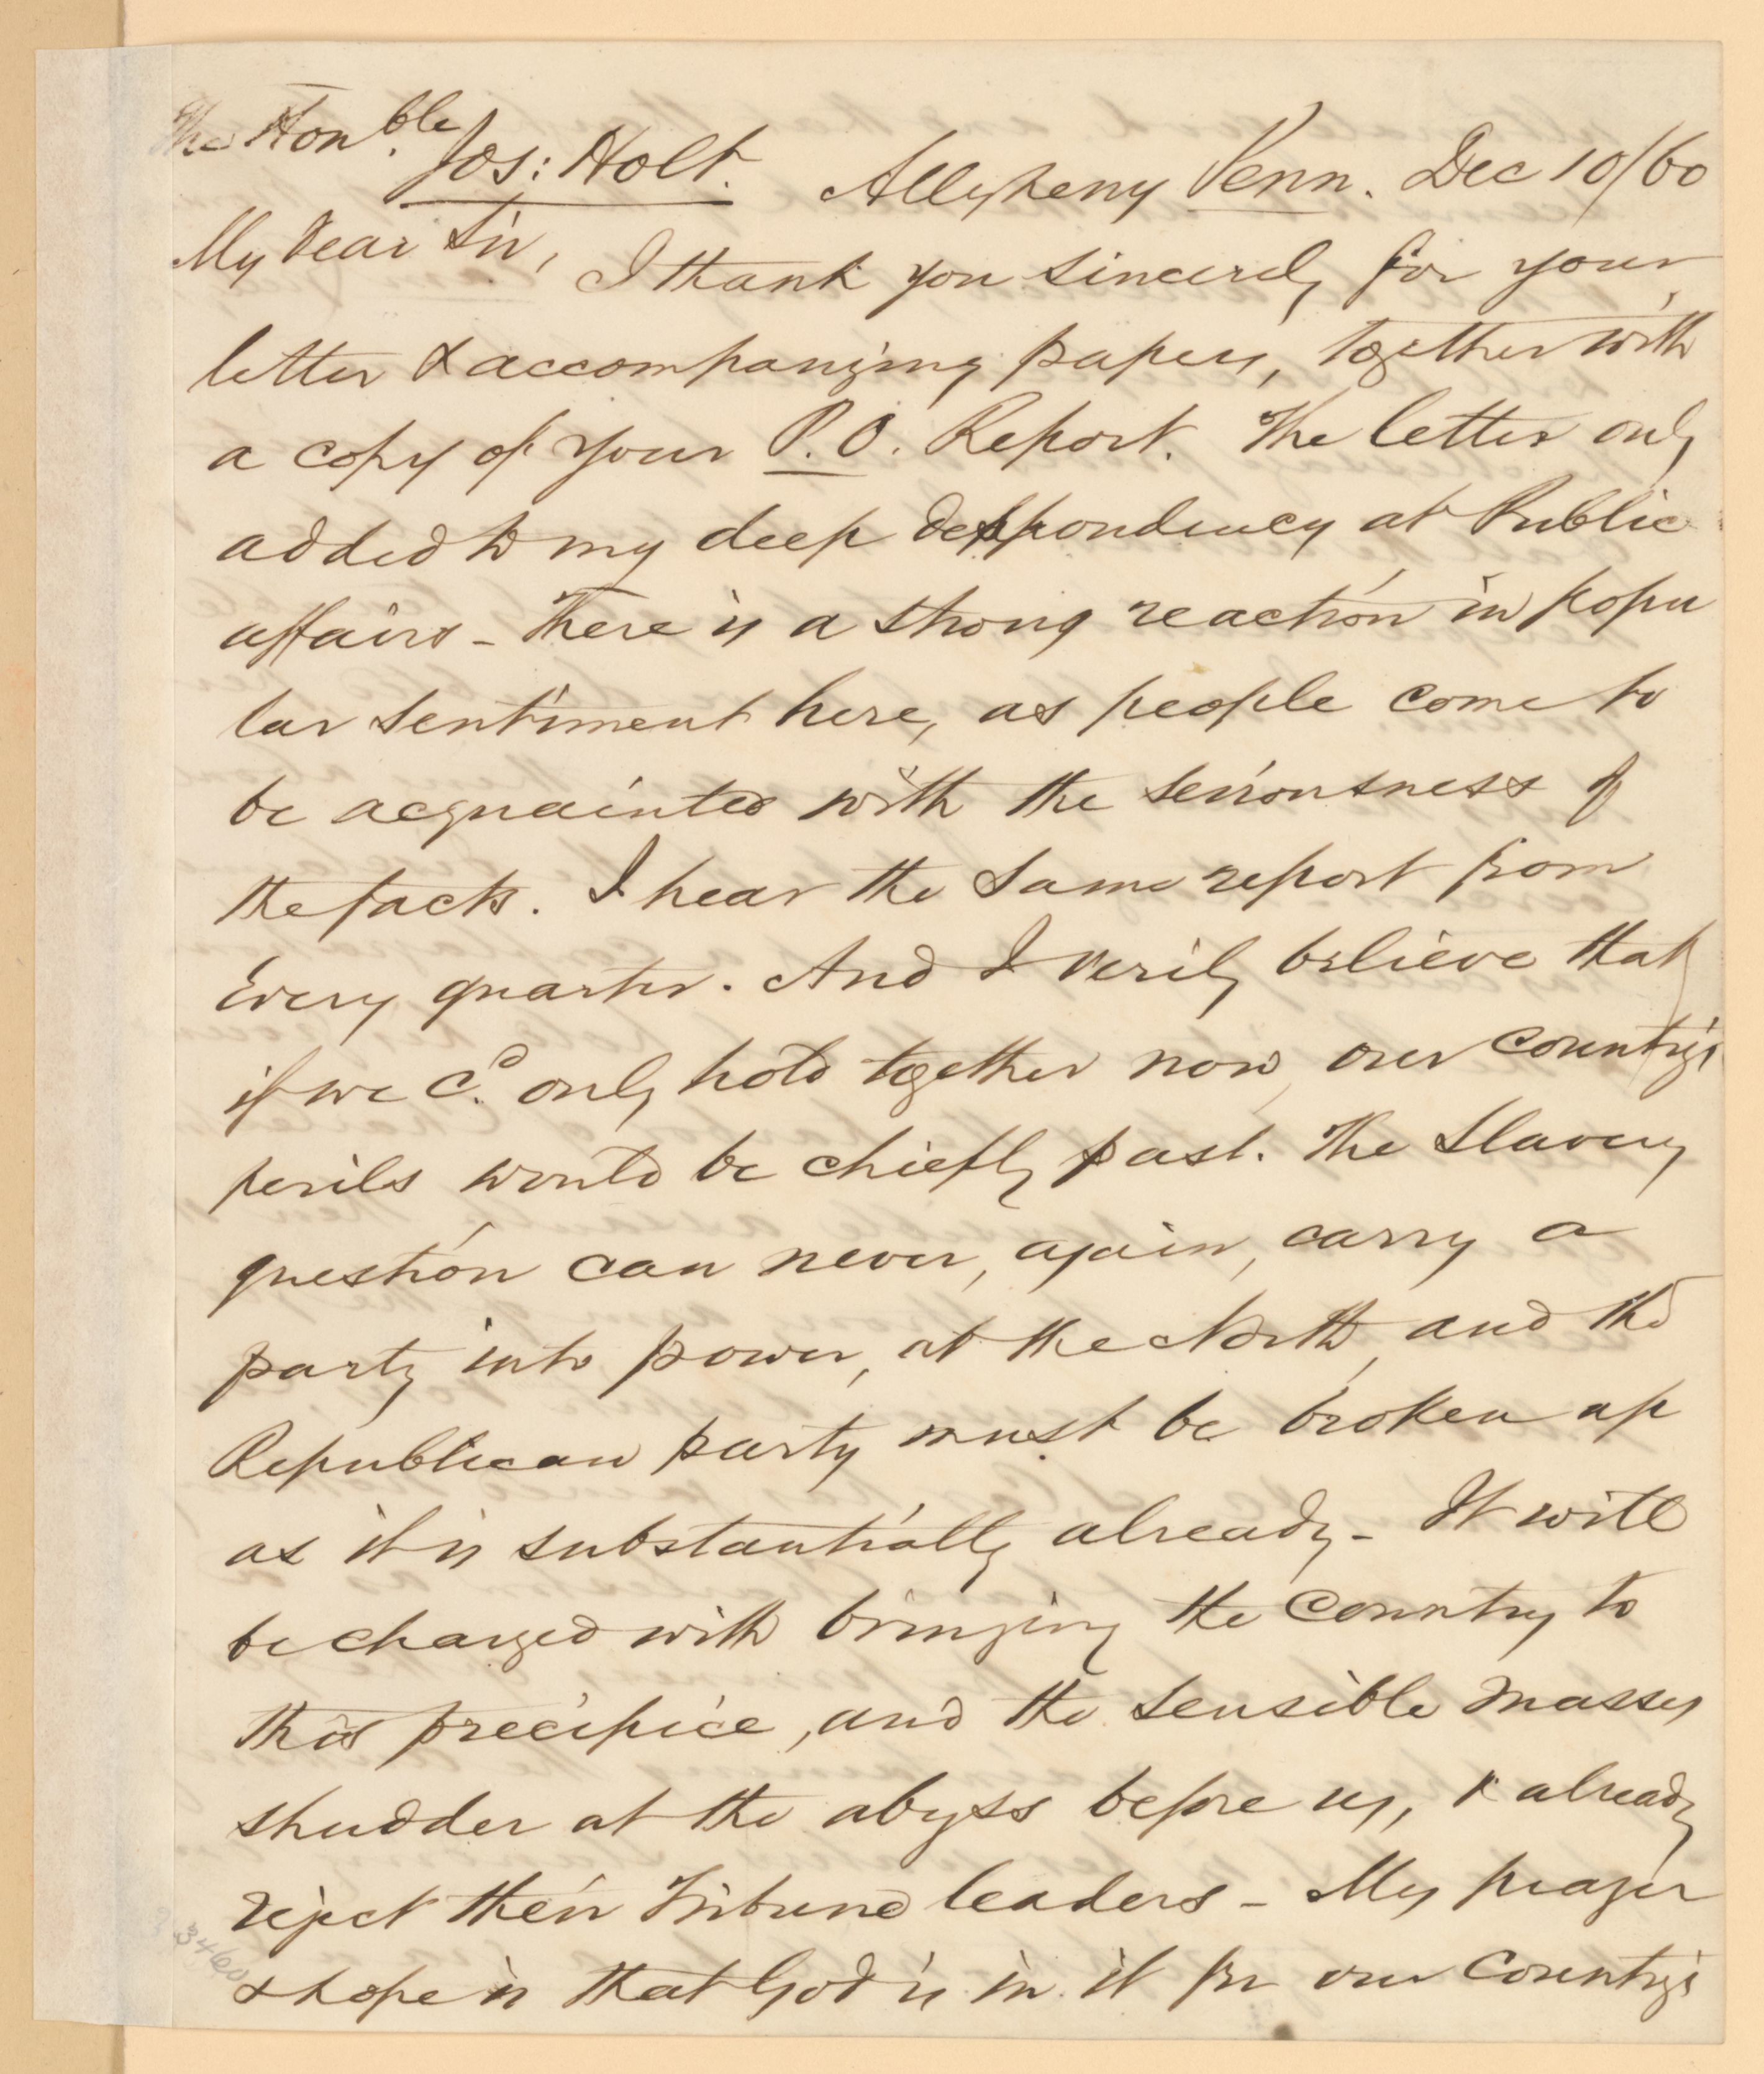 The Honble. Jos: Holt. Allegheny Penn. Dec 10/60
My Dear Sir, I thank you sincerely for your
letter & accompanying papers, together with
a copy of your P.O. Report. The letter only
added to my deep despondency at Public
affairs - There is a strong reaction in popu
lar sentiment here, as people come to
be acquainted with the seriousness of
the facts. I hear the same report from
Every quarter. And I verily believe that
if we cd. only hold together now, our country's
perils would be chiefly past. The Slavery
question can never, again, carry a
party into power, at the North, and the
Republican party must be broken up
as it is substantially already - It will
be charged with bringing the Country to
this precipice, and the sensible masses
shudder at the abyss before us, & already
reject their Tribune leaders - My prayer
& hope is that God is in it for our Country's
3460